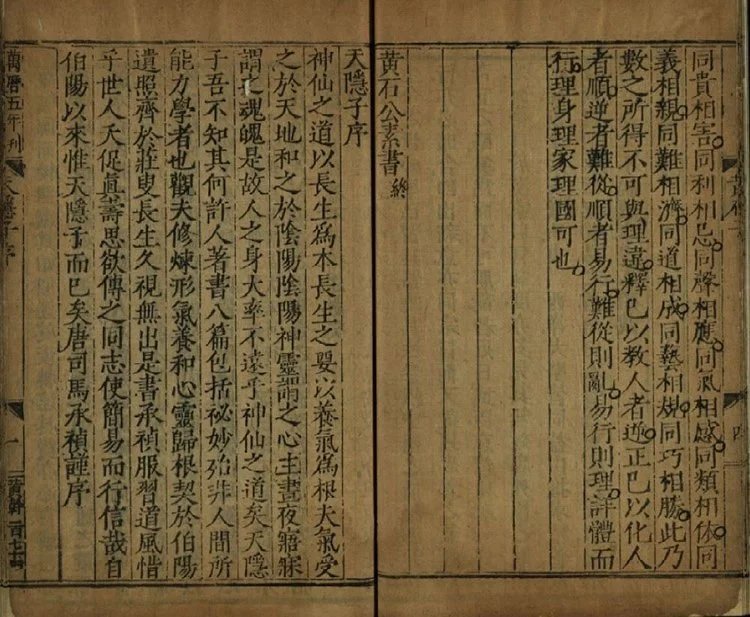 同貴相害同利相忌同聲相應同氣相感同類相依同
義相親同難相濟同道相成同藝相規同巧相勝此乃
數之所得不可與理違釋已以教人者逆正已以化人
者順逆者難從順者易行難從則亂易行則理詳體而
行理身理家理國可也
黃石公素書 終
四
天隱子序
神仙之道以長生爲本長生之要以養氣爲根夫氣受
之於天地和之於陰陽陰陽神靈謂之心主晝夜寤寐
謂之魂魄是故人之身大率不遠乎神仙之道矣天隱
子吾不知其何許人著書八篇包括祕妙殆非人間所
能力學者也觀夫修煉形氣養和心靈歸根契於伯陽
遺照齊於莊叟長生久視無出是書承禎服習道風惜
乎世人夭促眞壽思欲傳之同志使簡易而行信哉自
伯陽以來惟天隱子而已矣唐司馬承禎謹序
萬曆五年刊 天隱子序 一